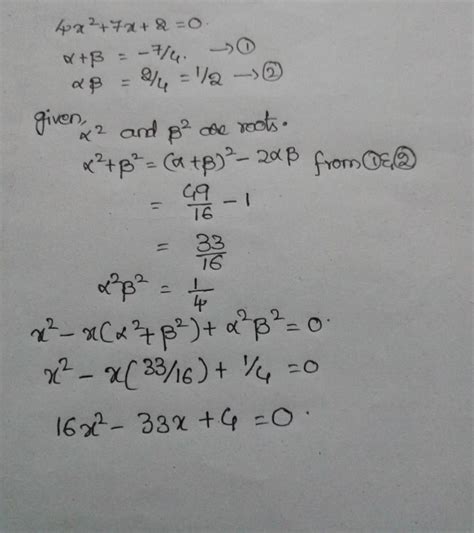 4x² + 7x + 2 = 0.
α + β = -7/4. → ①
αβ = 2/4 = 1/2 → ②
given, α² and β² are roots.
α² + β² = (α + β)² - 2αβ from ① & ②
= 49/16 - 1
= 33/16
α²β² = 1/4
x² - x(α² + β²) + α²β² = 0.
x² - x(33/16) + 1/4 = 0
16x² - 33x + 4 = 0.